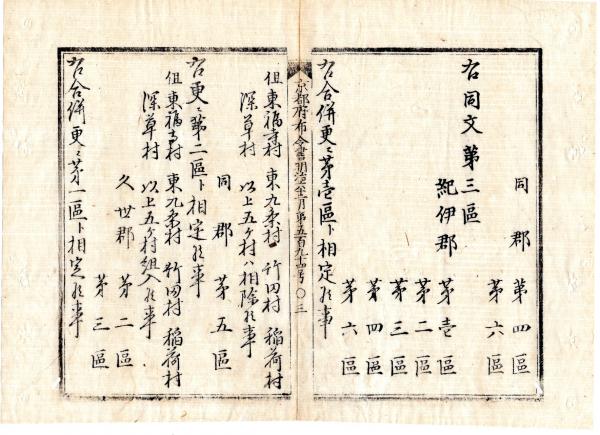 同郡 第四區
第六區
右同文第三區
紀伊郡 第壱區
第二區
第三區
第四區
第六區
右合併更ニ第壱區ト相定候事
京都府布令書明治 年 月第五百九十四号 〇三
但東福寺村 東九条村 竹田村 稲荷村
深草村 以上五ケ村ハ相除候事
同郡 第五區
右更ニ第二區ト相定候事
但東福寺村 東九条村 竹田村 稲荷村
深草村 以上五ケ村組入候事
久世郡 第二區
第三區
右合併更ニ第一區ト相定候事